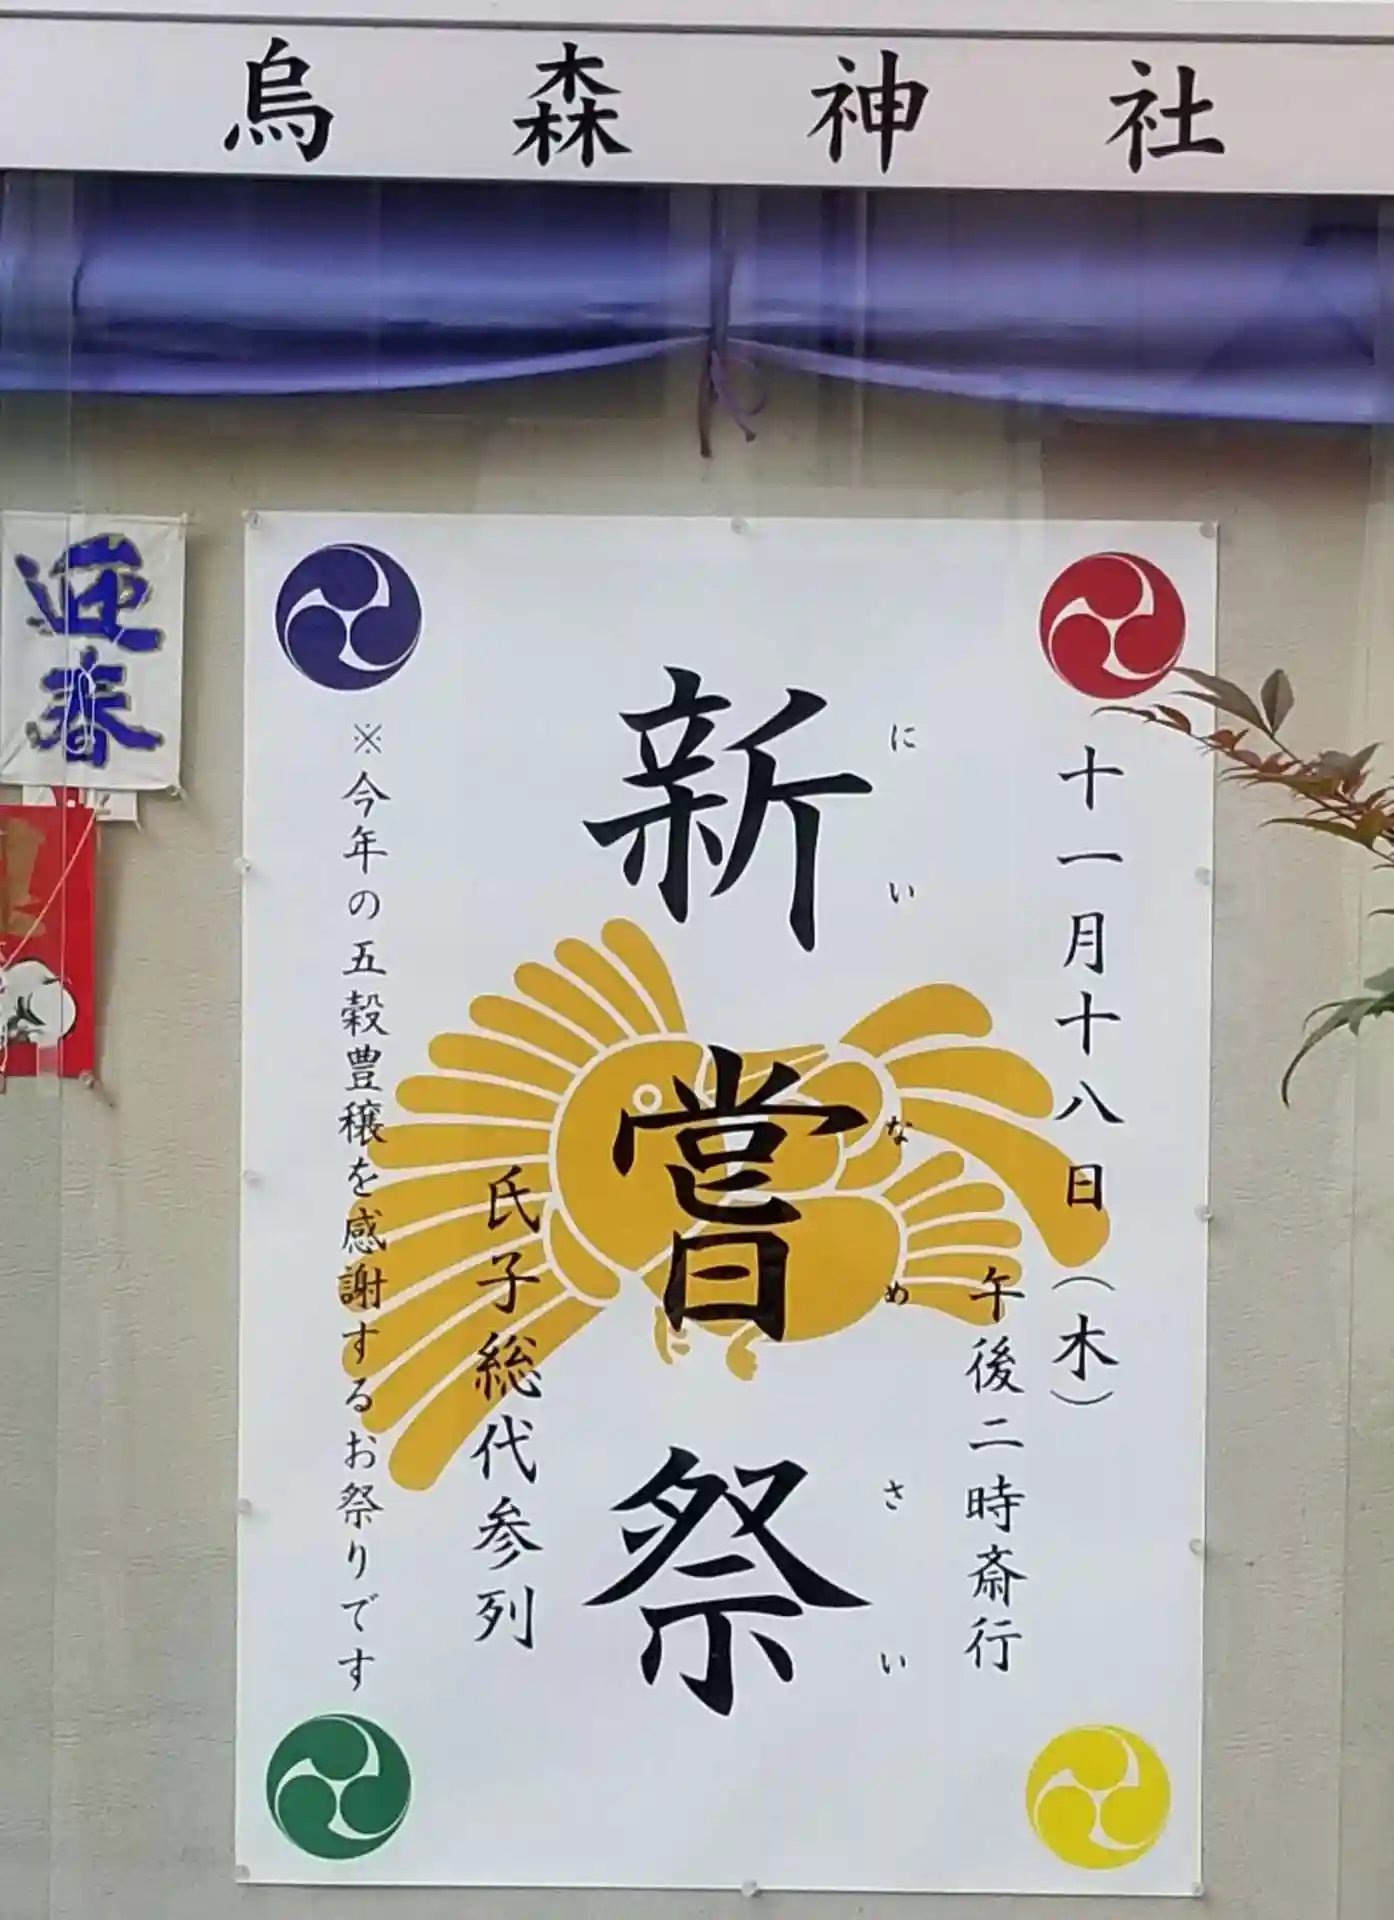 烏森神社
迎春
十一月十八日(木)
午後二時斎行
にいなめさい
新嘗祭
氏子総代参列
※今年の五穀豊穣を感謝するお祭りです